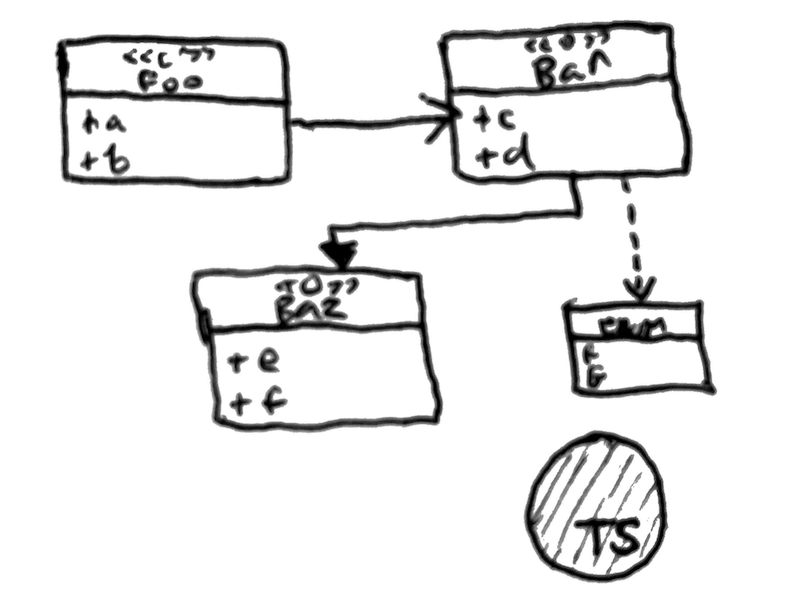 <<C>>
Foo
+a
+b
<<O>>
Bar
+c
+d
<<O>>
Baz
+e
+f
enum
F
G
TS